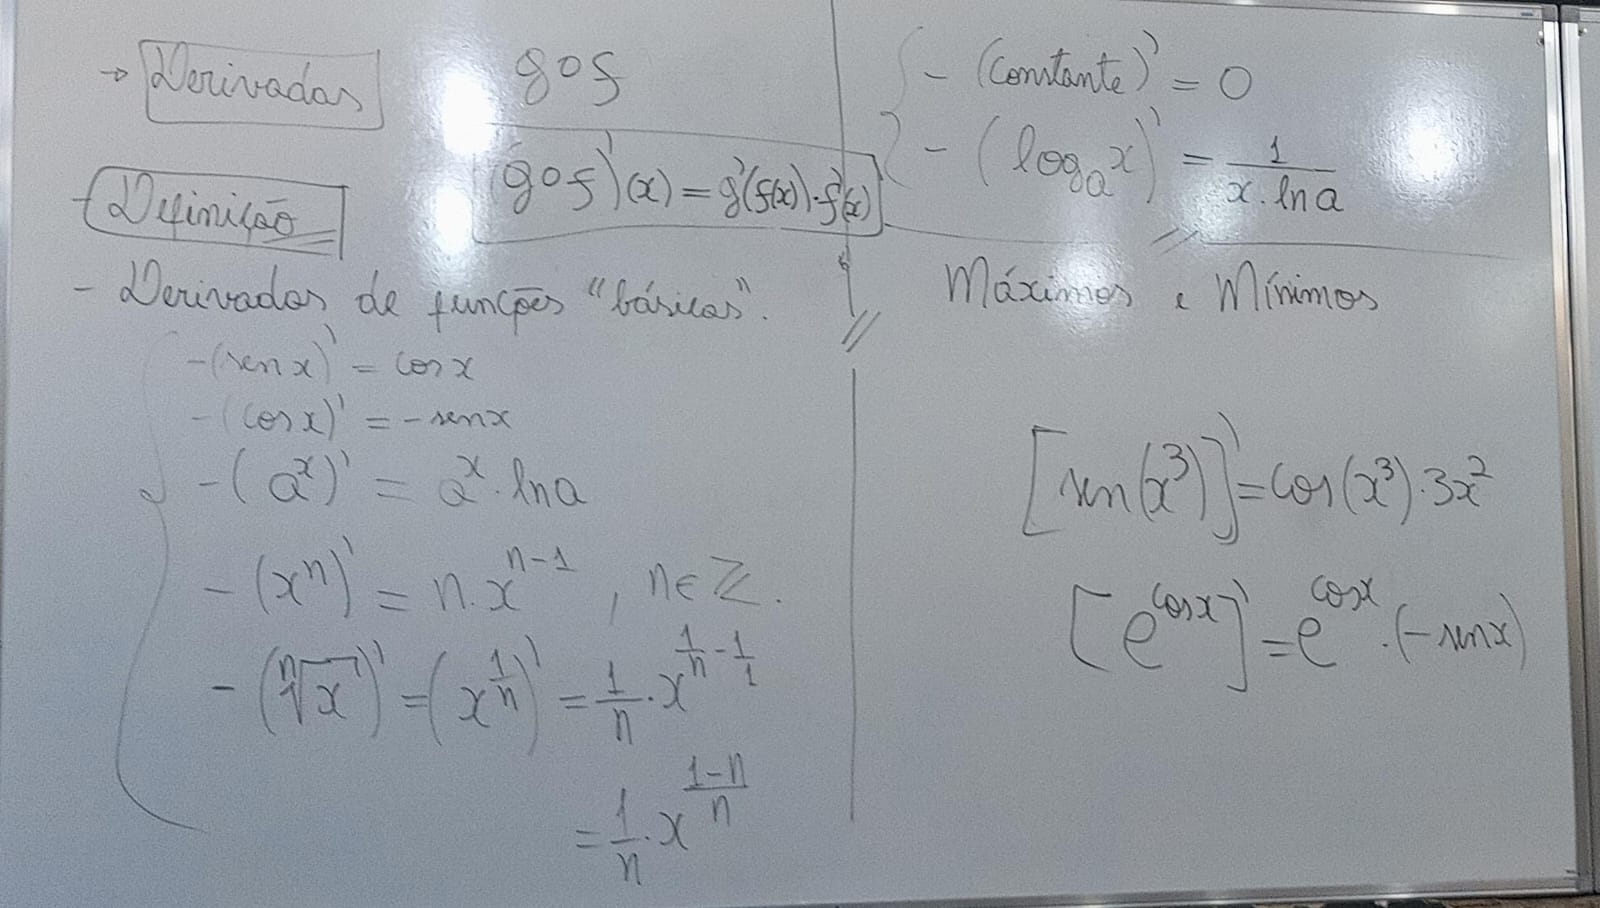 → Derivadas
gof
(gof)'(x) = g'(f(x)).f'(x)
- Definição
- Derivadas de funções "básicas".
- (sen x)' = cos x
- (cos x)' = - sen x
- (a^x)' = a^x . ln a
- (x^n)' = n.x^(n-1) , n ∈ ℤ.
- (ⁿ√x)' = (x^(1/n))' = 1/n . x^(1/n - 1/1)
= 1/n . x^((1-n)/n)
- (Constante)' = 0
- (log_a x)' = 1/(x . ln a)
Máximos e Mínimos
[sen(x³)]' = cos(x³) . 3x²
[e^(cos x)]' = e^(cos x) . (- sen x)